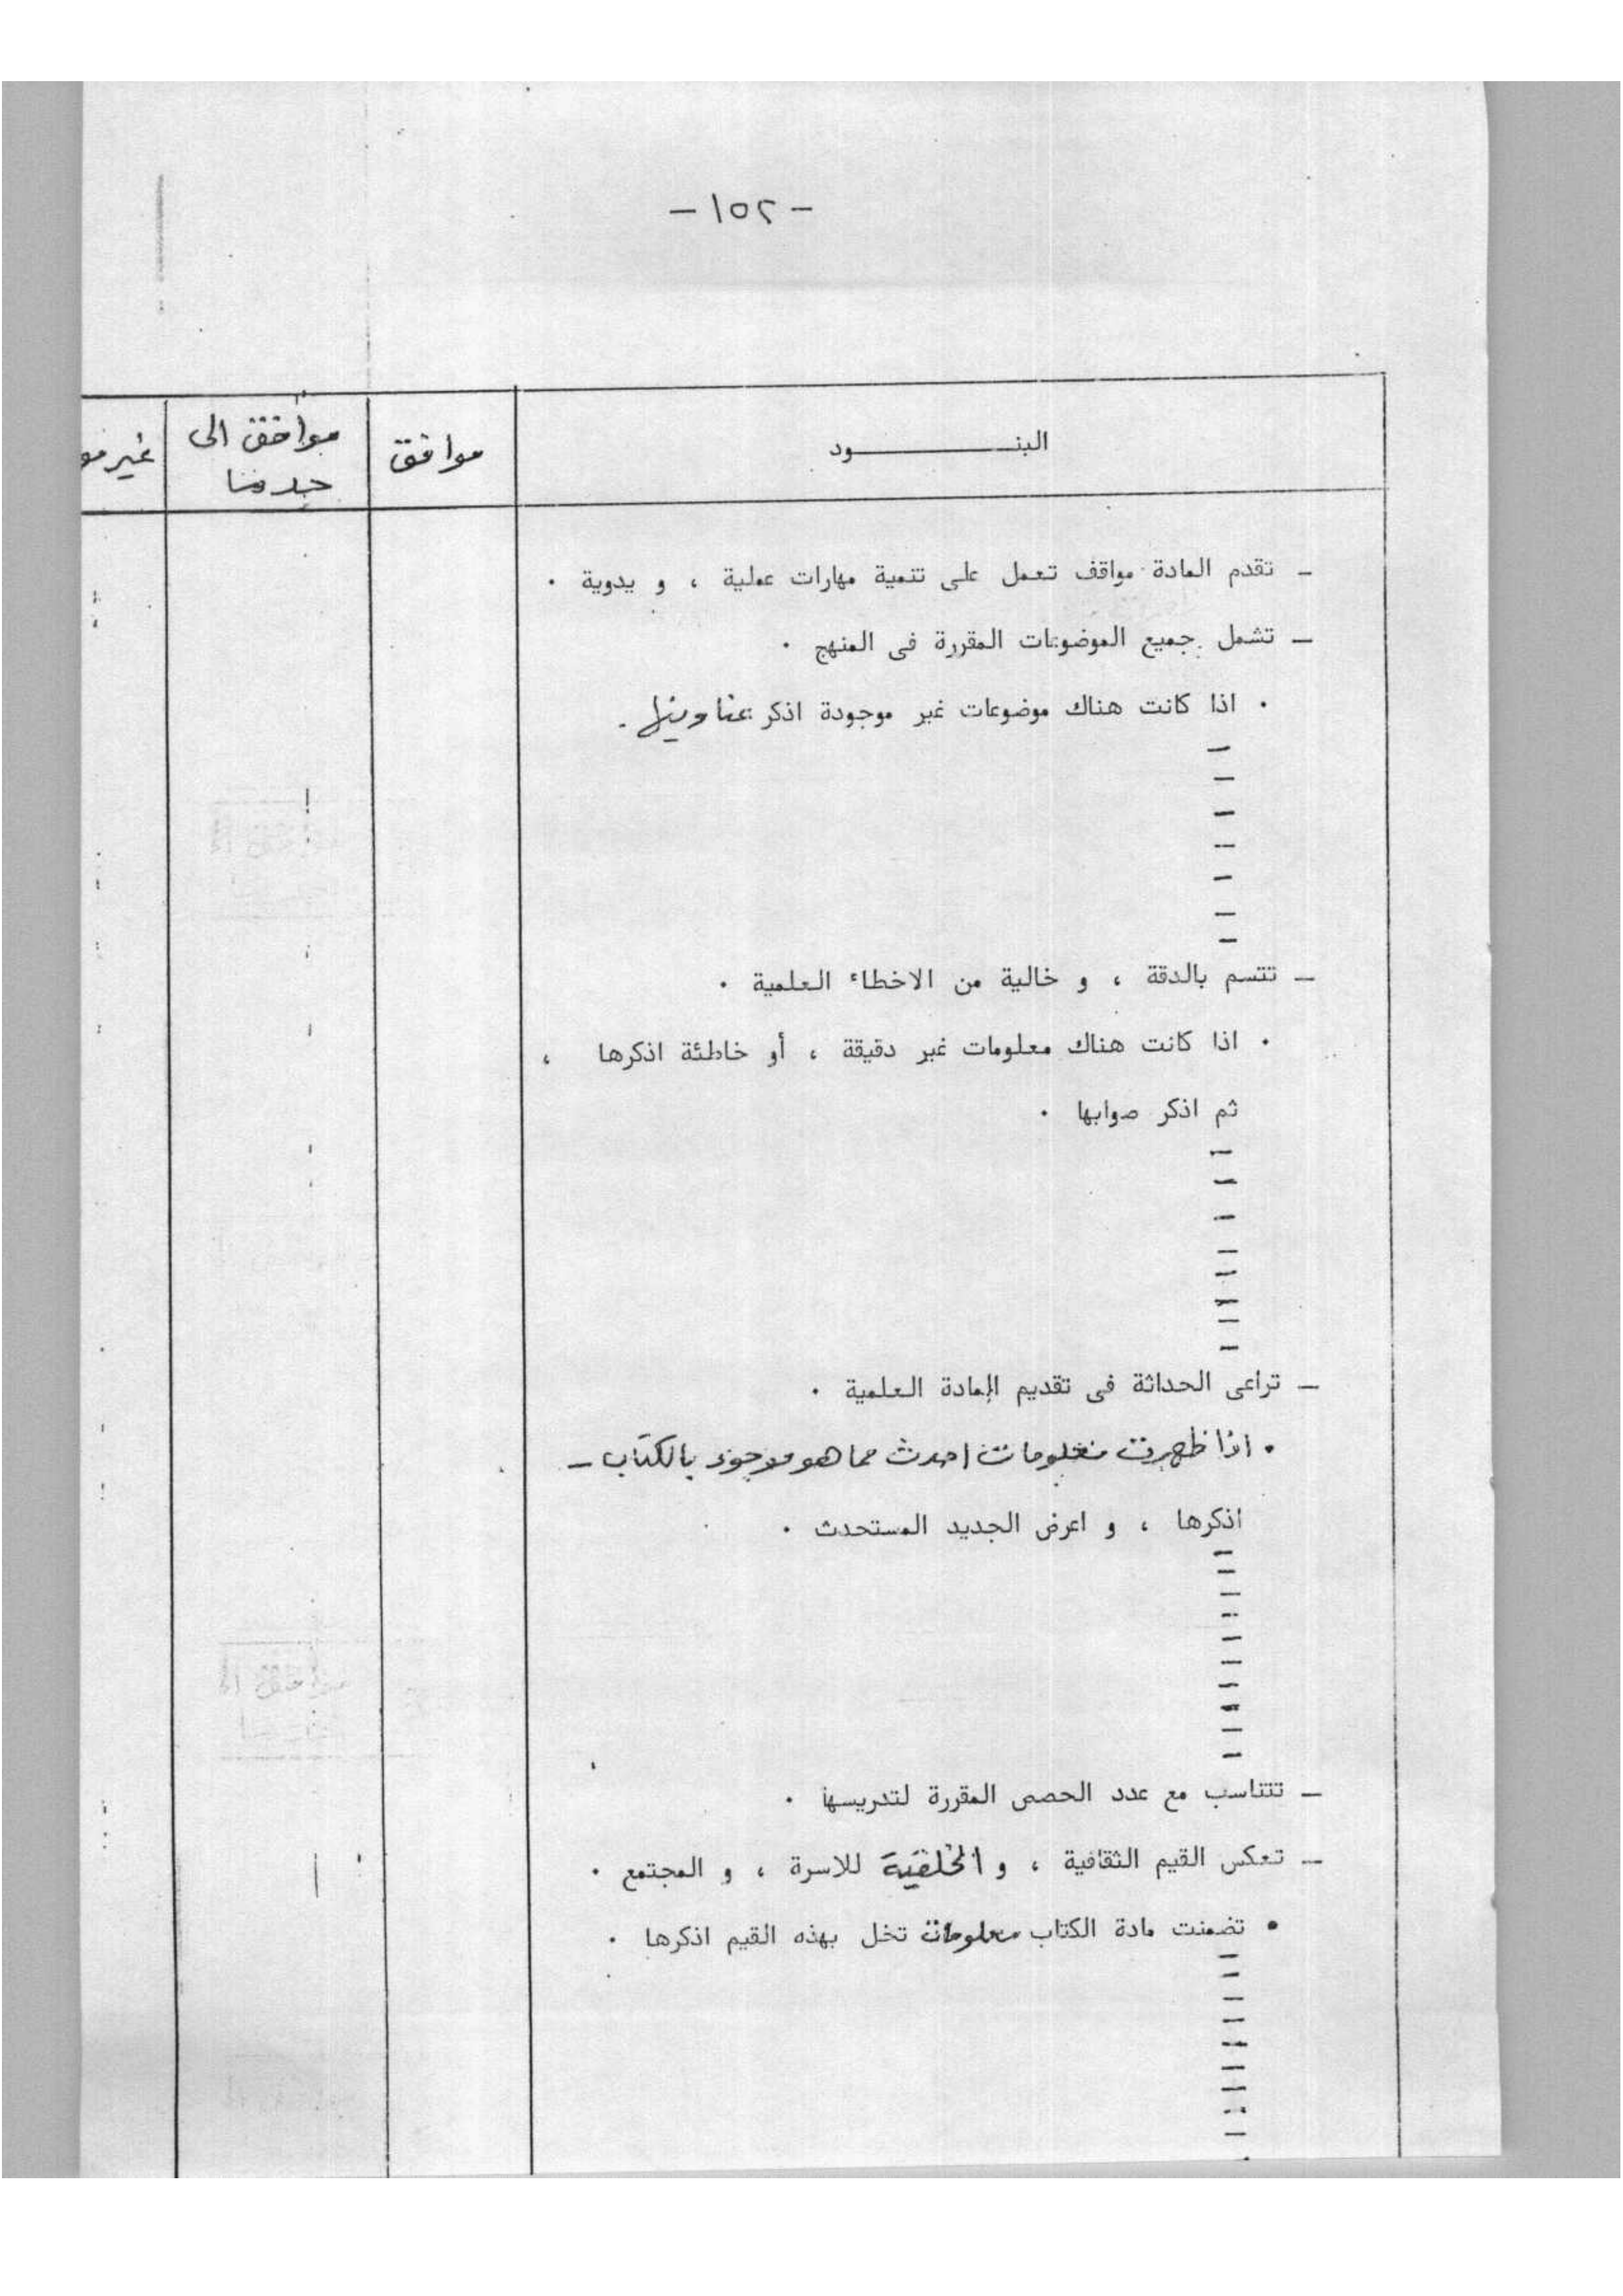 - ١٥٢ -
البنـــــــــود
موافق
موافق الى
حد ما
غير مو
ـ تقدم المادة مواقف تعمل على تنمية مهارات عملية ، و يدوية ٠
ـ تشمل جميع الموضوعات المقررة فى المنهج ٠
٠ اذا كانت هناك موضوعات غير موجودة اذكر عناوينها .
ـ
ـ
ـ
ـ
ـ
ـ
ـ
ـ تتسم بالدقة ، و خالية من الاخطاء العلمية ٠
٠ اذا كانت هناك معلومات غير دقيقة ، أو خاطئة اذكرها ،
ثم اذكر صوابها ٠
ـ
ـ
ـ
ـ
ـ
ـ
ـ
ـ
ـ تراعى الحداثة فى تقديم المادة العلمية ٠
٠ اذا ظهرت معلومات احدث مما هو موجود بالكتاب ـ
اذكرها ، و اعرض الجديد المستحدث ٠
ـ
ـ
ـ
ـ
ـ
ـ
ـ
ـ
ـ
ـ
ـ تتناسب مع عدد الحصص المقررة لتدريسها ٠
ـ تعكس القيم الثقافية ، و الخلقية للاسرة ، و المجتمع ٠
• تضمنت مادة الكتاب معلومات تخل بهذه القيم اذكرها ٠
ـ
ـ
ـ
ـ
ـ
ـ
ـ
ـ
ـ